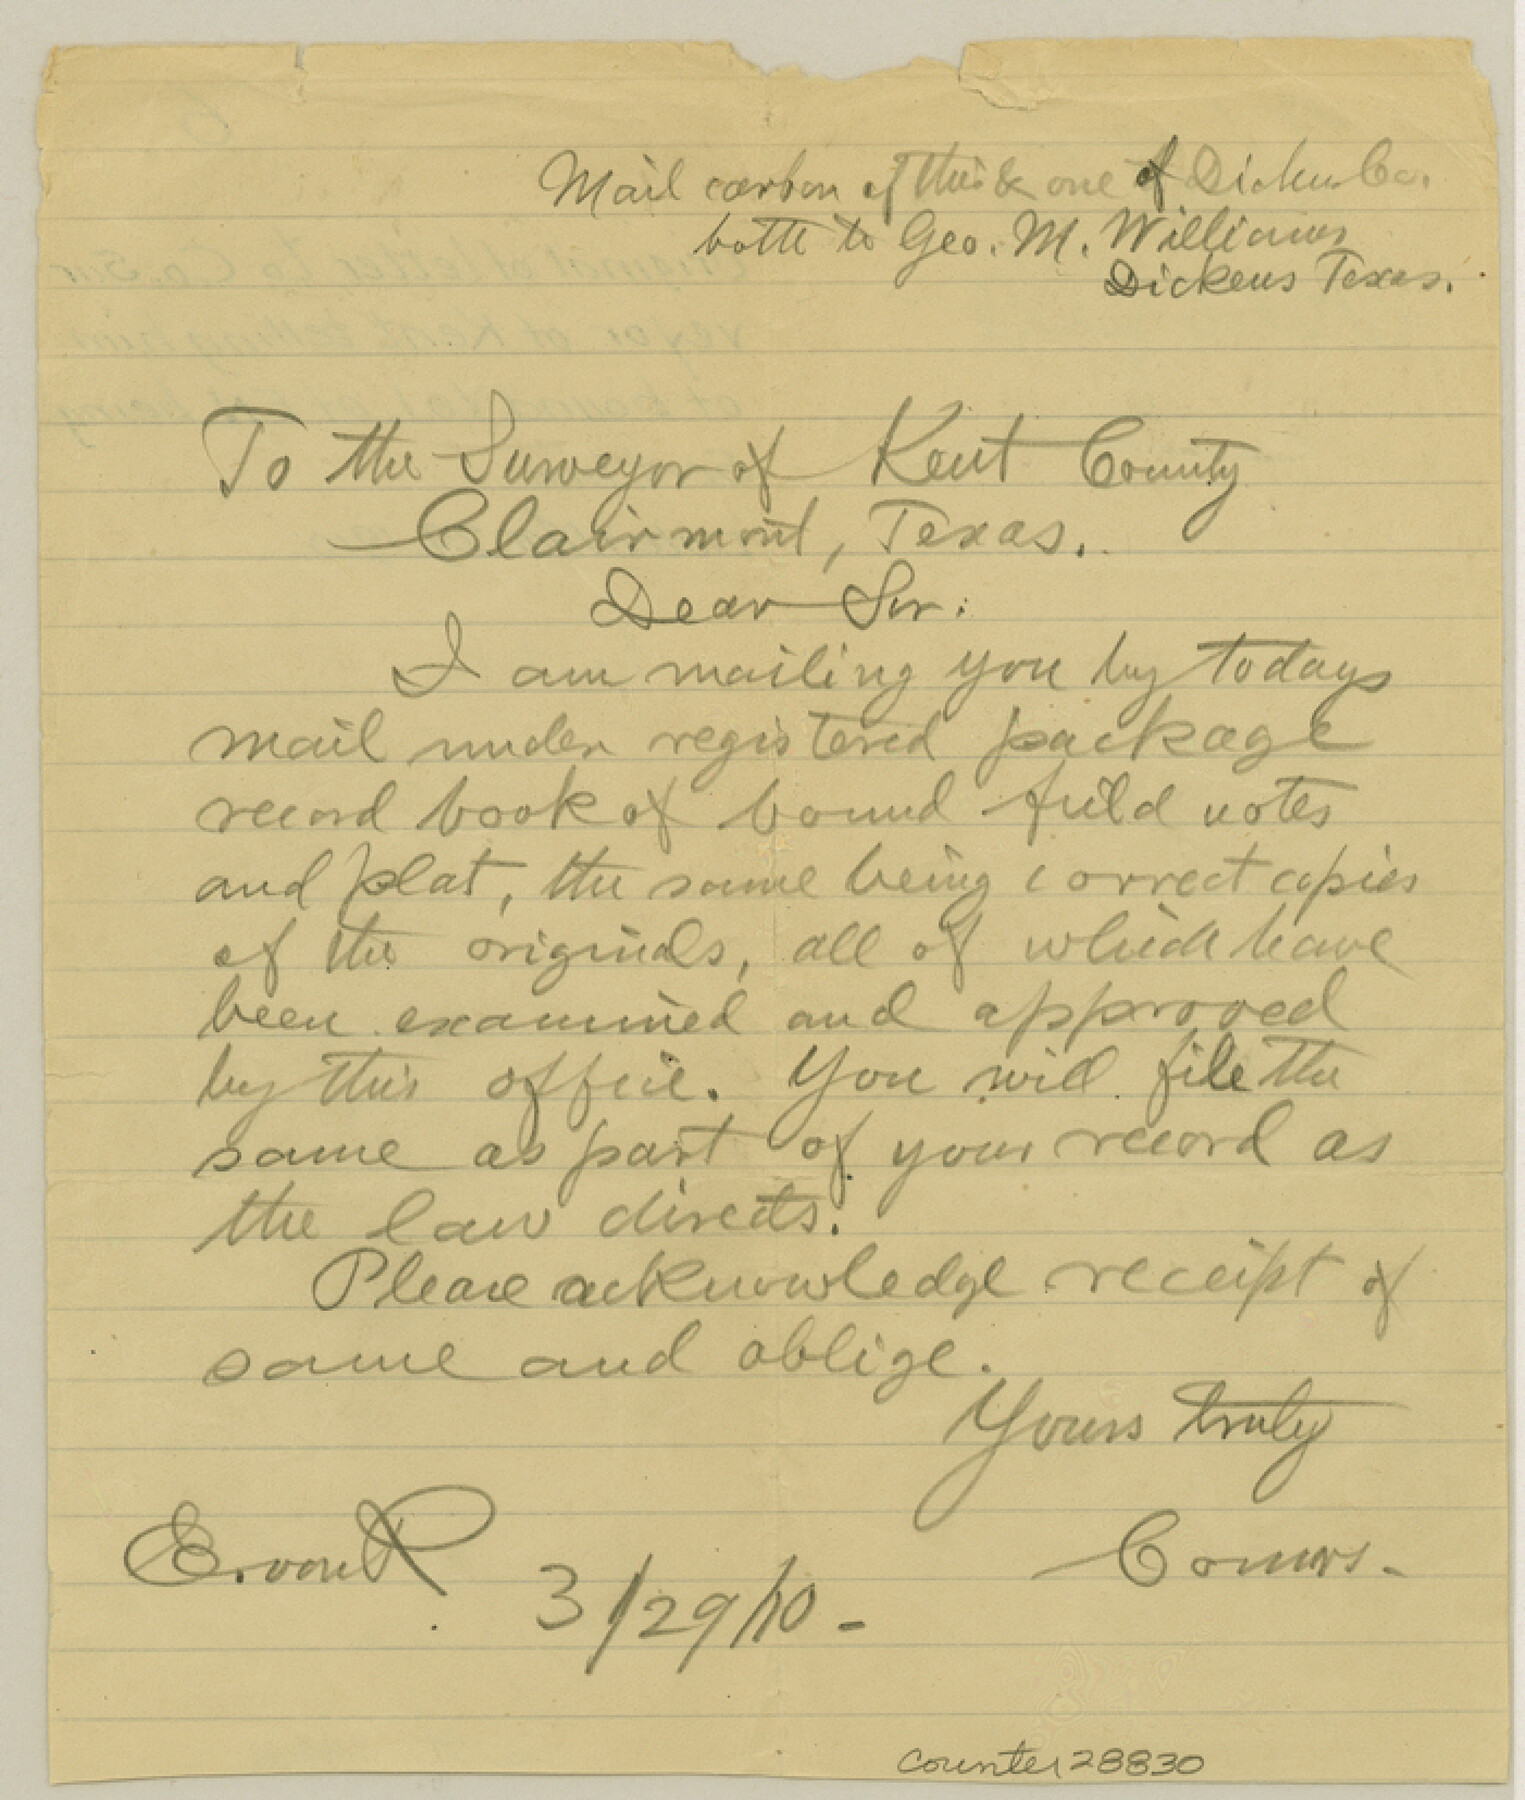 Mail carbon of this & one of Dickens Co.
both to Geo. M. Williams
Dickens Texas.
To the Surveyor of Kent County
Clairmont, Texas.
Dear Sir:
I am mailing you by todays
mail under registered package
record book of bound field notes
and plat, the same being correct copies
of the originals, all of which have
been examined and approved
by this office. You will file the
same as part of your record as
the law directs.
Please acknowledge receipt of
same and oblige.
Yours truly
Comrs.
E. von R
3/29/10 -
counter 28830